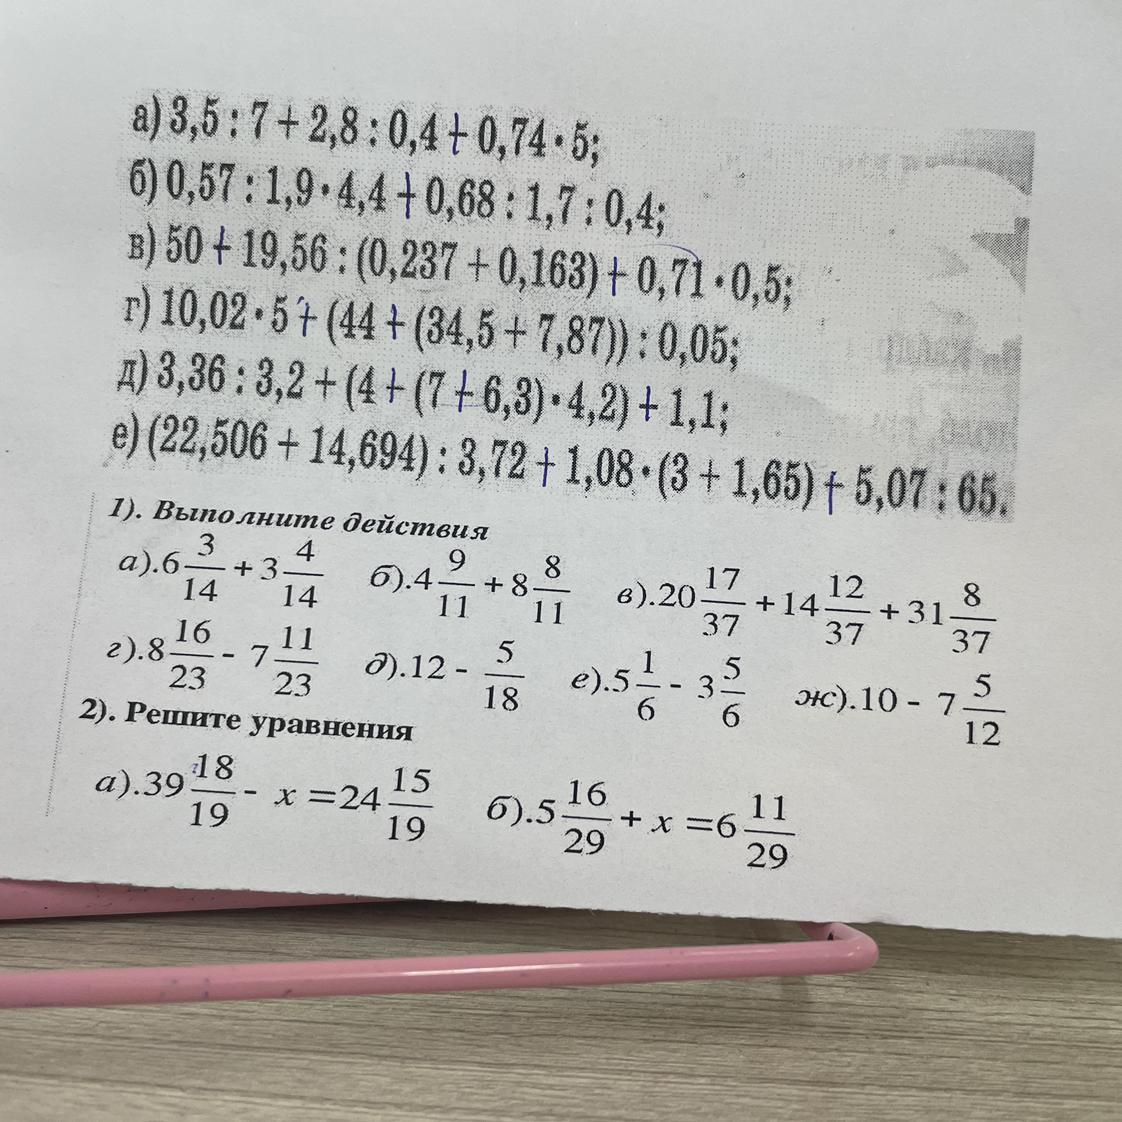 а) 3,5 : 7 + 2,8 : 0,4 + 0,74 · 5;
б) 0,57 : 1,9 · 4,4 + 0,68 : 1,7 : 0,4;
в) 50 + 19,56 : (0,237 + 0,163) + 0,71 · 0,5;
г) 10,02 · 5 + (44 + (34,5 + 7,87)) : 0,05;
д) 3,36 : 3,2 + (4 + (7 + 6,3) · 4,2) + 1,1;
е) (22,506 + 14,694) : 3,72 + 1,08 · (3 + 1,65) + 5,07 : 65.
1). Выполните действия
а).6 3/14 + 3 4/14 б).4 9/11 + 8 8/11 в).20 17/37 + 14 12/37 + 31 8/37
г).8 16/23 - 7 11/23 д).12 - 5/18 е).5 1/6 - 3 5/6 ж).10 - 7 5/12
2). Решите уравнения
а).39 18/19 - x = 24 15/19 б).5 16/29 + x = 6 11/29